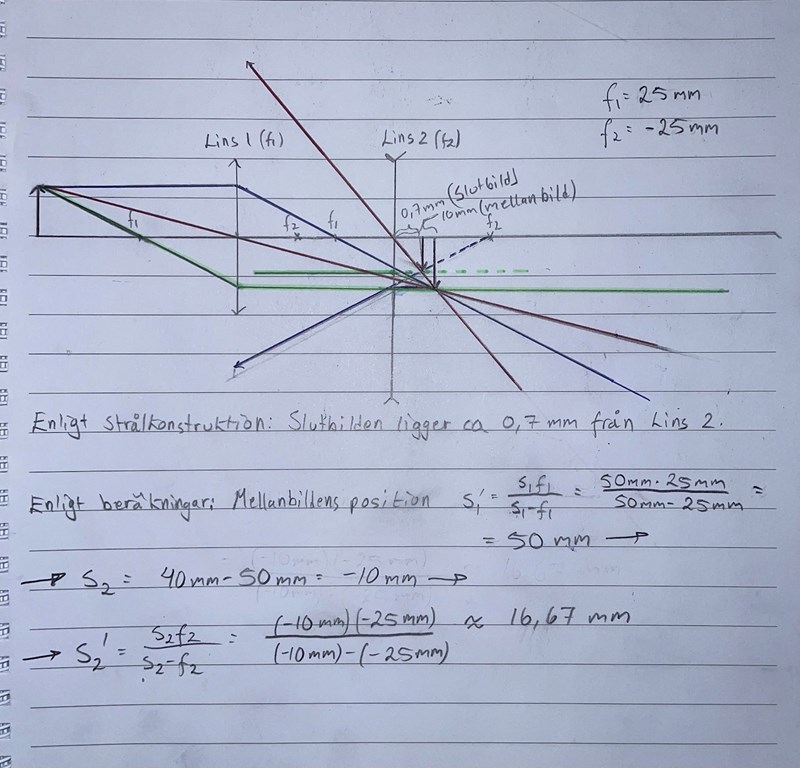 f₁ = 25 mm
f₂ = -25 mm
Lins 1 (f₁)
Lins 2 (f₂)
0,7mm (Slutbild)
10mm (mellanbild)
f₁
f₂
f₁
f₂
Enligt strålkonstruktion: Slutbilden ligger ca 0,7 mm från Lins 2.
Enligt beräkningar: Mellanbildens position S₁' = S₁f₁ / S₁-f₁ = 50mm · 25mm / 50mm - 25mm =
= 50 mm →
→ S₂ = 40mm - 50mm = -10mm →
→ S₂' = S₂f₂ / S₂-f₂ = (-10mm)(-25mm) / (-10mm)-(-25mm) ≈ 16,67 mm